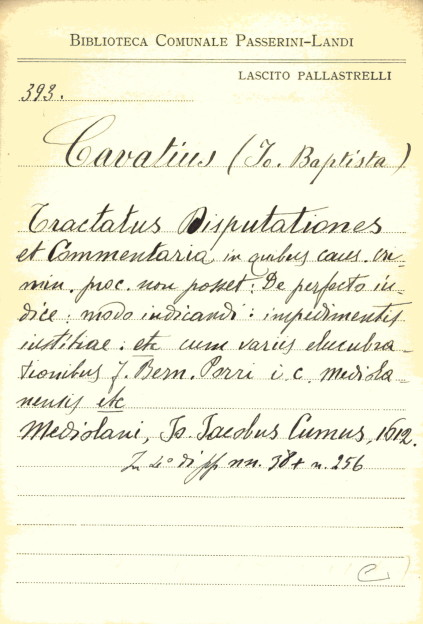 BIBLIOTECA COMUNALE PASSERINI-LANDI
LASCITO PALLASTRELLI
393.
Cavatius (Io. Baptista)
Tractatus Disputationes
et Commentaria in quibus caus. cri-
min. proc. non posset: De perfecto iu-
dice: modo iudicandi: impedimentis
iustitiae. etc cum variis elucubra-
tionibus J. Bern. Porri i. c. mediola-
nensis etc
Mediolani, Io. Jacobus Cumus, 1612.
In 4° di pp nn. 38 + n. 256
C